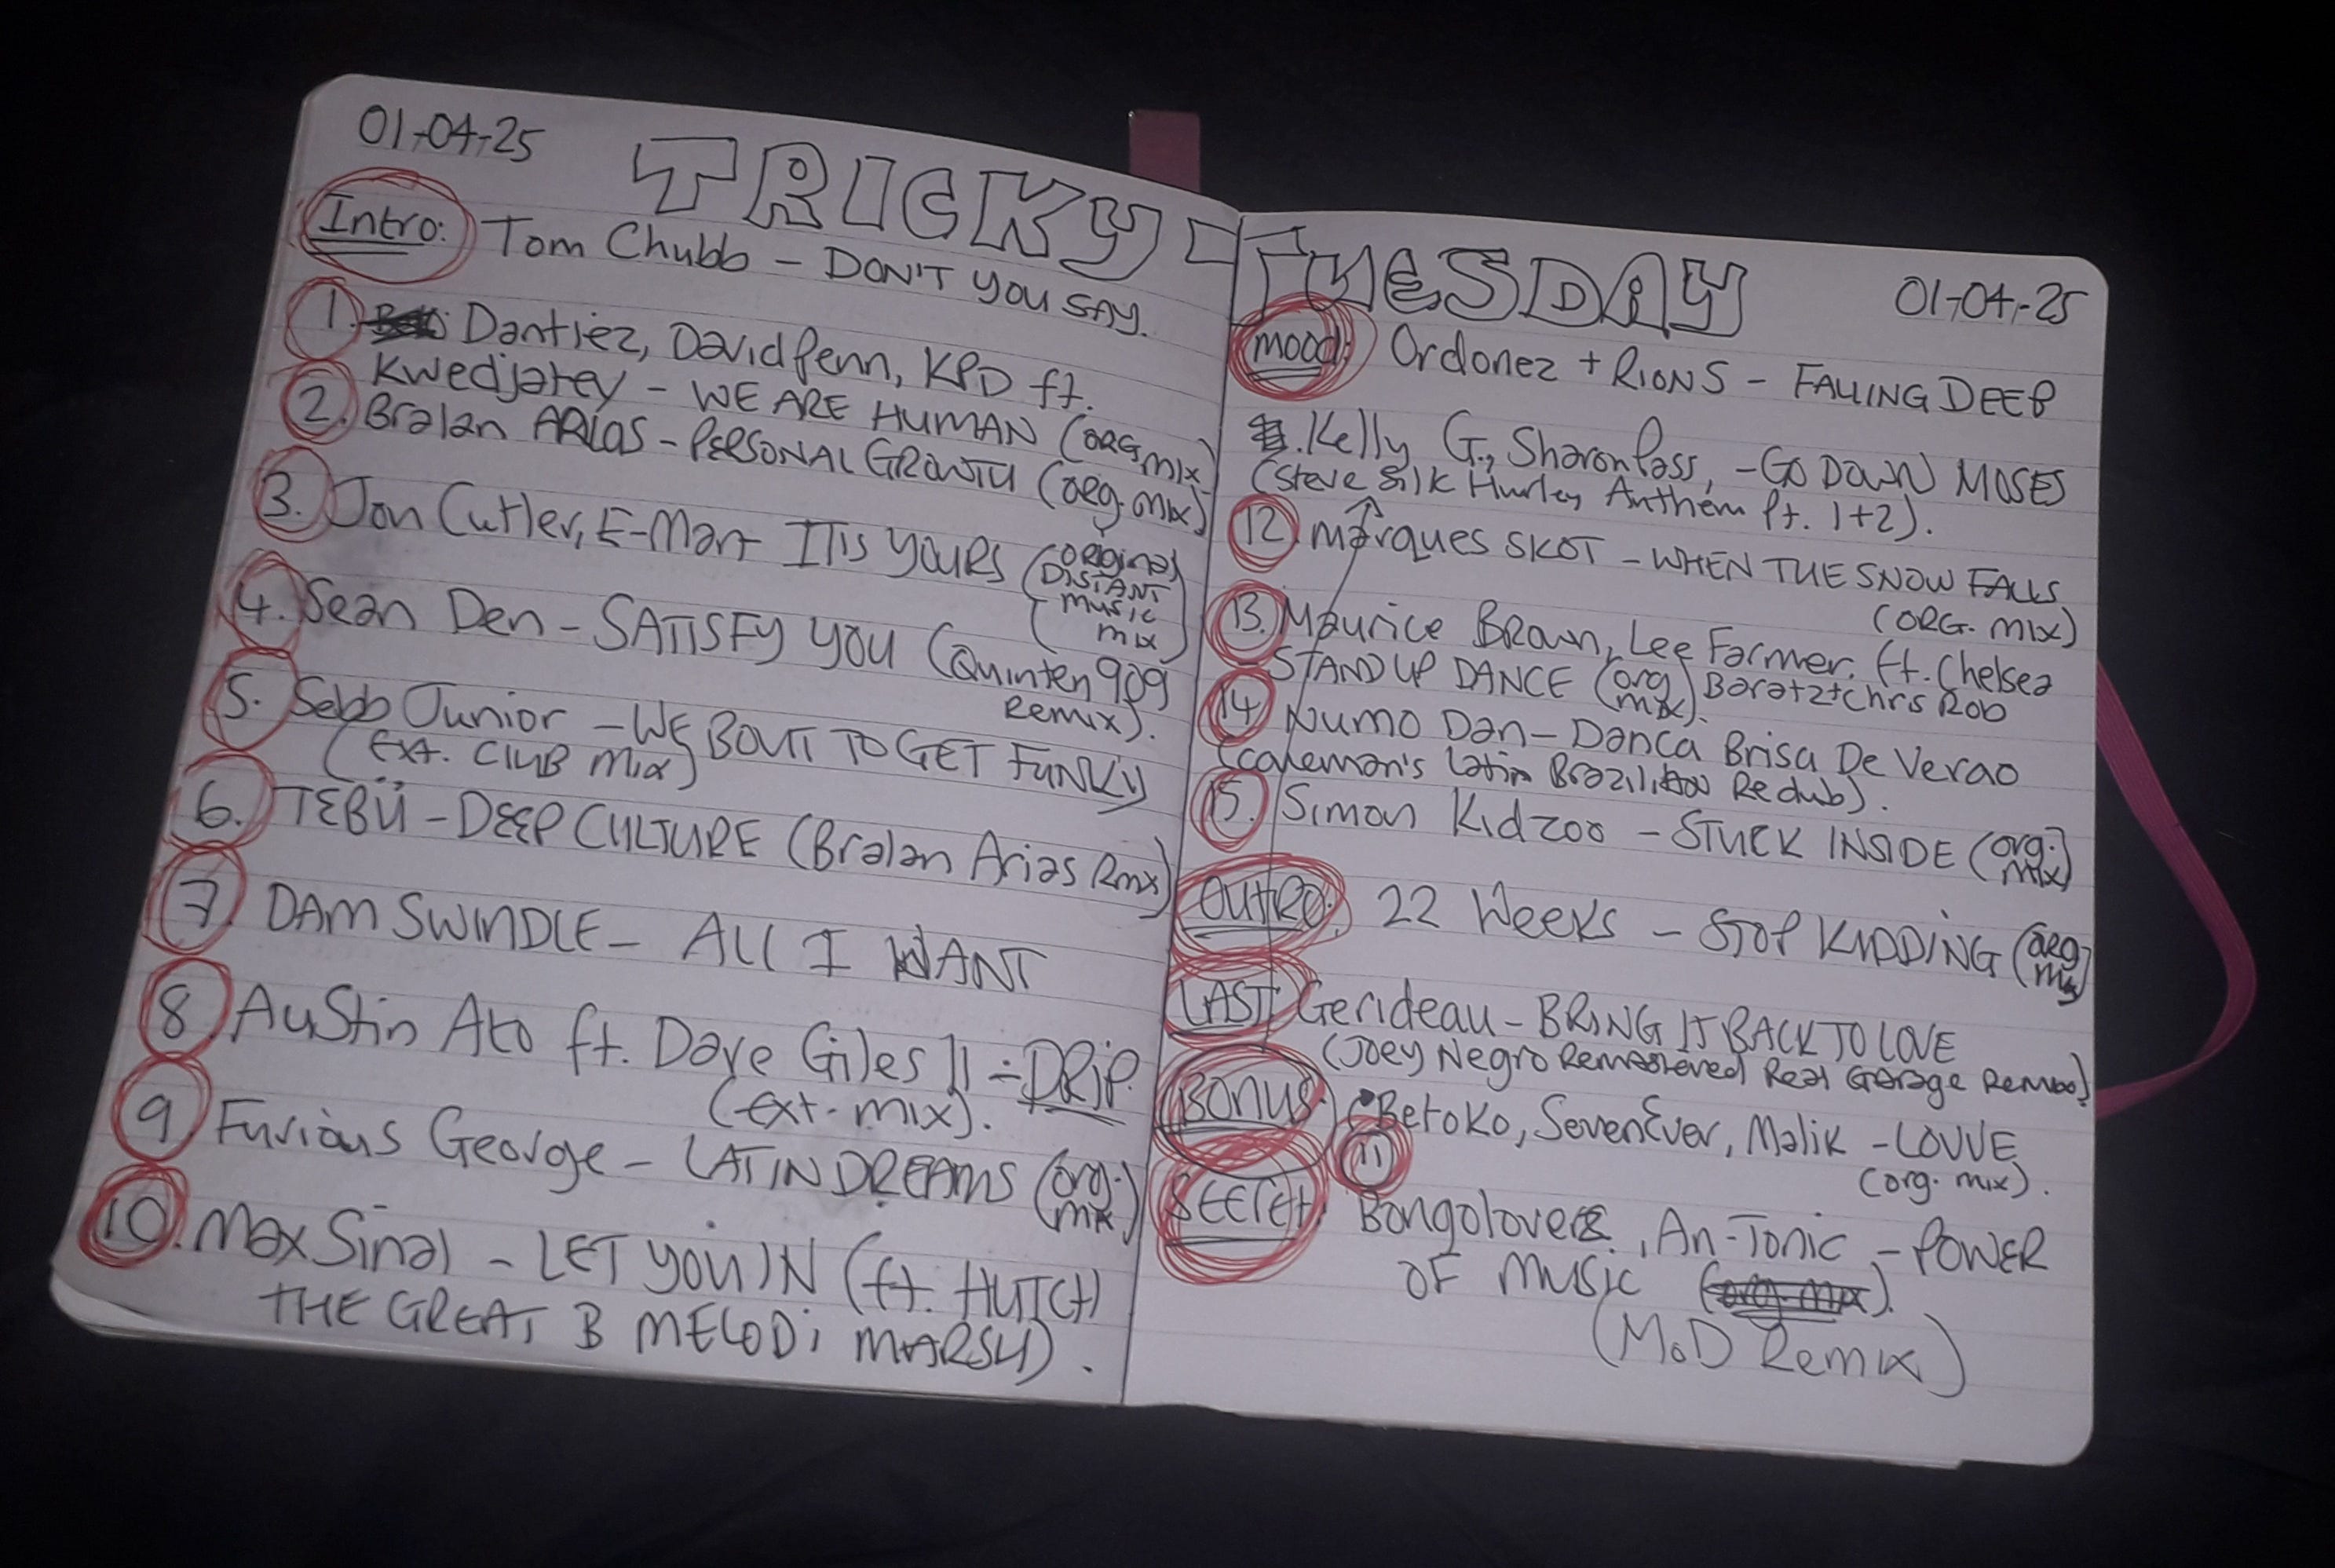 01-04-25
TRICKY-TUESDAY
01-04-25
Intro: Tom Chubb - DON'T YOU SAY.
1. Dantiez, David Penn, KPD ft.
Kwedjatey - WE ARE HUMAN (ORG. MIX)
2. Bralan ARIAS - PERSONAL GROWTH (org. mix)
3. Jon Cutler, E-Man - IT IS YOURS (original
DISTANT
music
mix)
4. Sean Den - SATISFY YOU (Quinten 909
Remix).
5. Sebb Junior - WE BOUT TO GET FUNKY
(Ext. Club Mix)
6. TEBÜ - DEEP CULTURE (Bralan Arias Rmx)
7. DAM SWINDLE - ALL I WANT
8. Austin Ato ft. Dave Giles II - DRIP.
(-ext. mix).
9. Furious George - LATIN DREAMS (org. mix)
10. Max Sinal - LET YOU IN (ft. HUTCH
THE GREAT B MELODi MARSH).
mood: Ordonez + RIONS - FALLING DEEP
Kelly G., Sharon Pass, - GO DOWN MOSES
(Steve Silk Hurley Anthem Pt. 1+2).
12. Marques SKOT - WHEN THE SNOW FALLS
(ORG. MIX)
13. Maurice Brown, Lee Farmer. ft. Chelsea
- STAND UP DANCE (org mix). Baratz + Chris Rob
14. Numo Dan - Danca Brisa De Verao
(coleman's Latin Brazilian Redub).
15. Simon Kidzoo - STUCK INSIDE (org. mix)
OUTRO: 22 Weeks - STOP KIDDING (org mix)
LAST: Gerideau - BRING IT BACK TO LOVE
(Joey Negro Remastered Real Garage Remix)
BONUS: Betoko, SevenEver, Malik - LOVVE
11
(org. mix).
SECRET: Bongoloverz, An-Tonic - POWER
OF MUSIC
(MoD Remix)